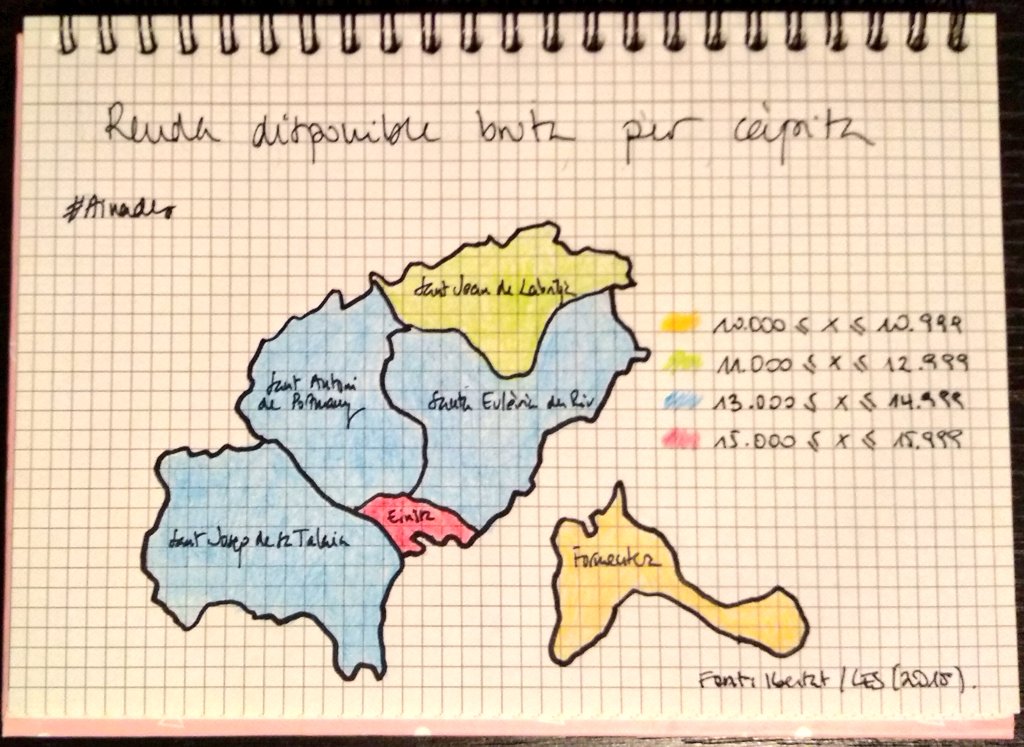 Renda disponible bruta per càpita
Sant Joan de Labritja
10.000 ≤ x ≤ 10.999
11.000 ≤ x ≤ 12.999
Sant Antoni
de Portmany
Santa Eulèria des Riu
13.000 ≤ x ≤ 14.999
15.000 ≤ x ≤ 15.999
Eivissa
Sant Josep de sa Talaia
Formentera
Font: Ibestat /